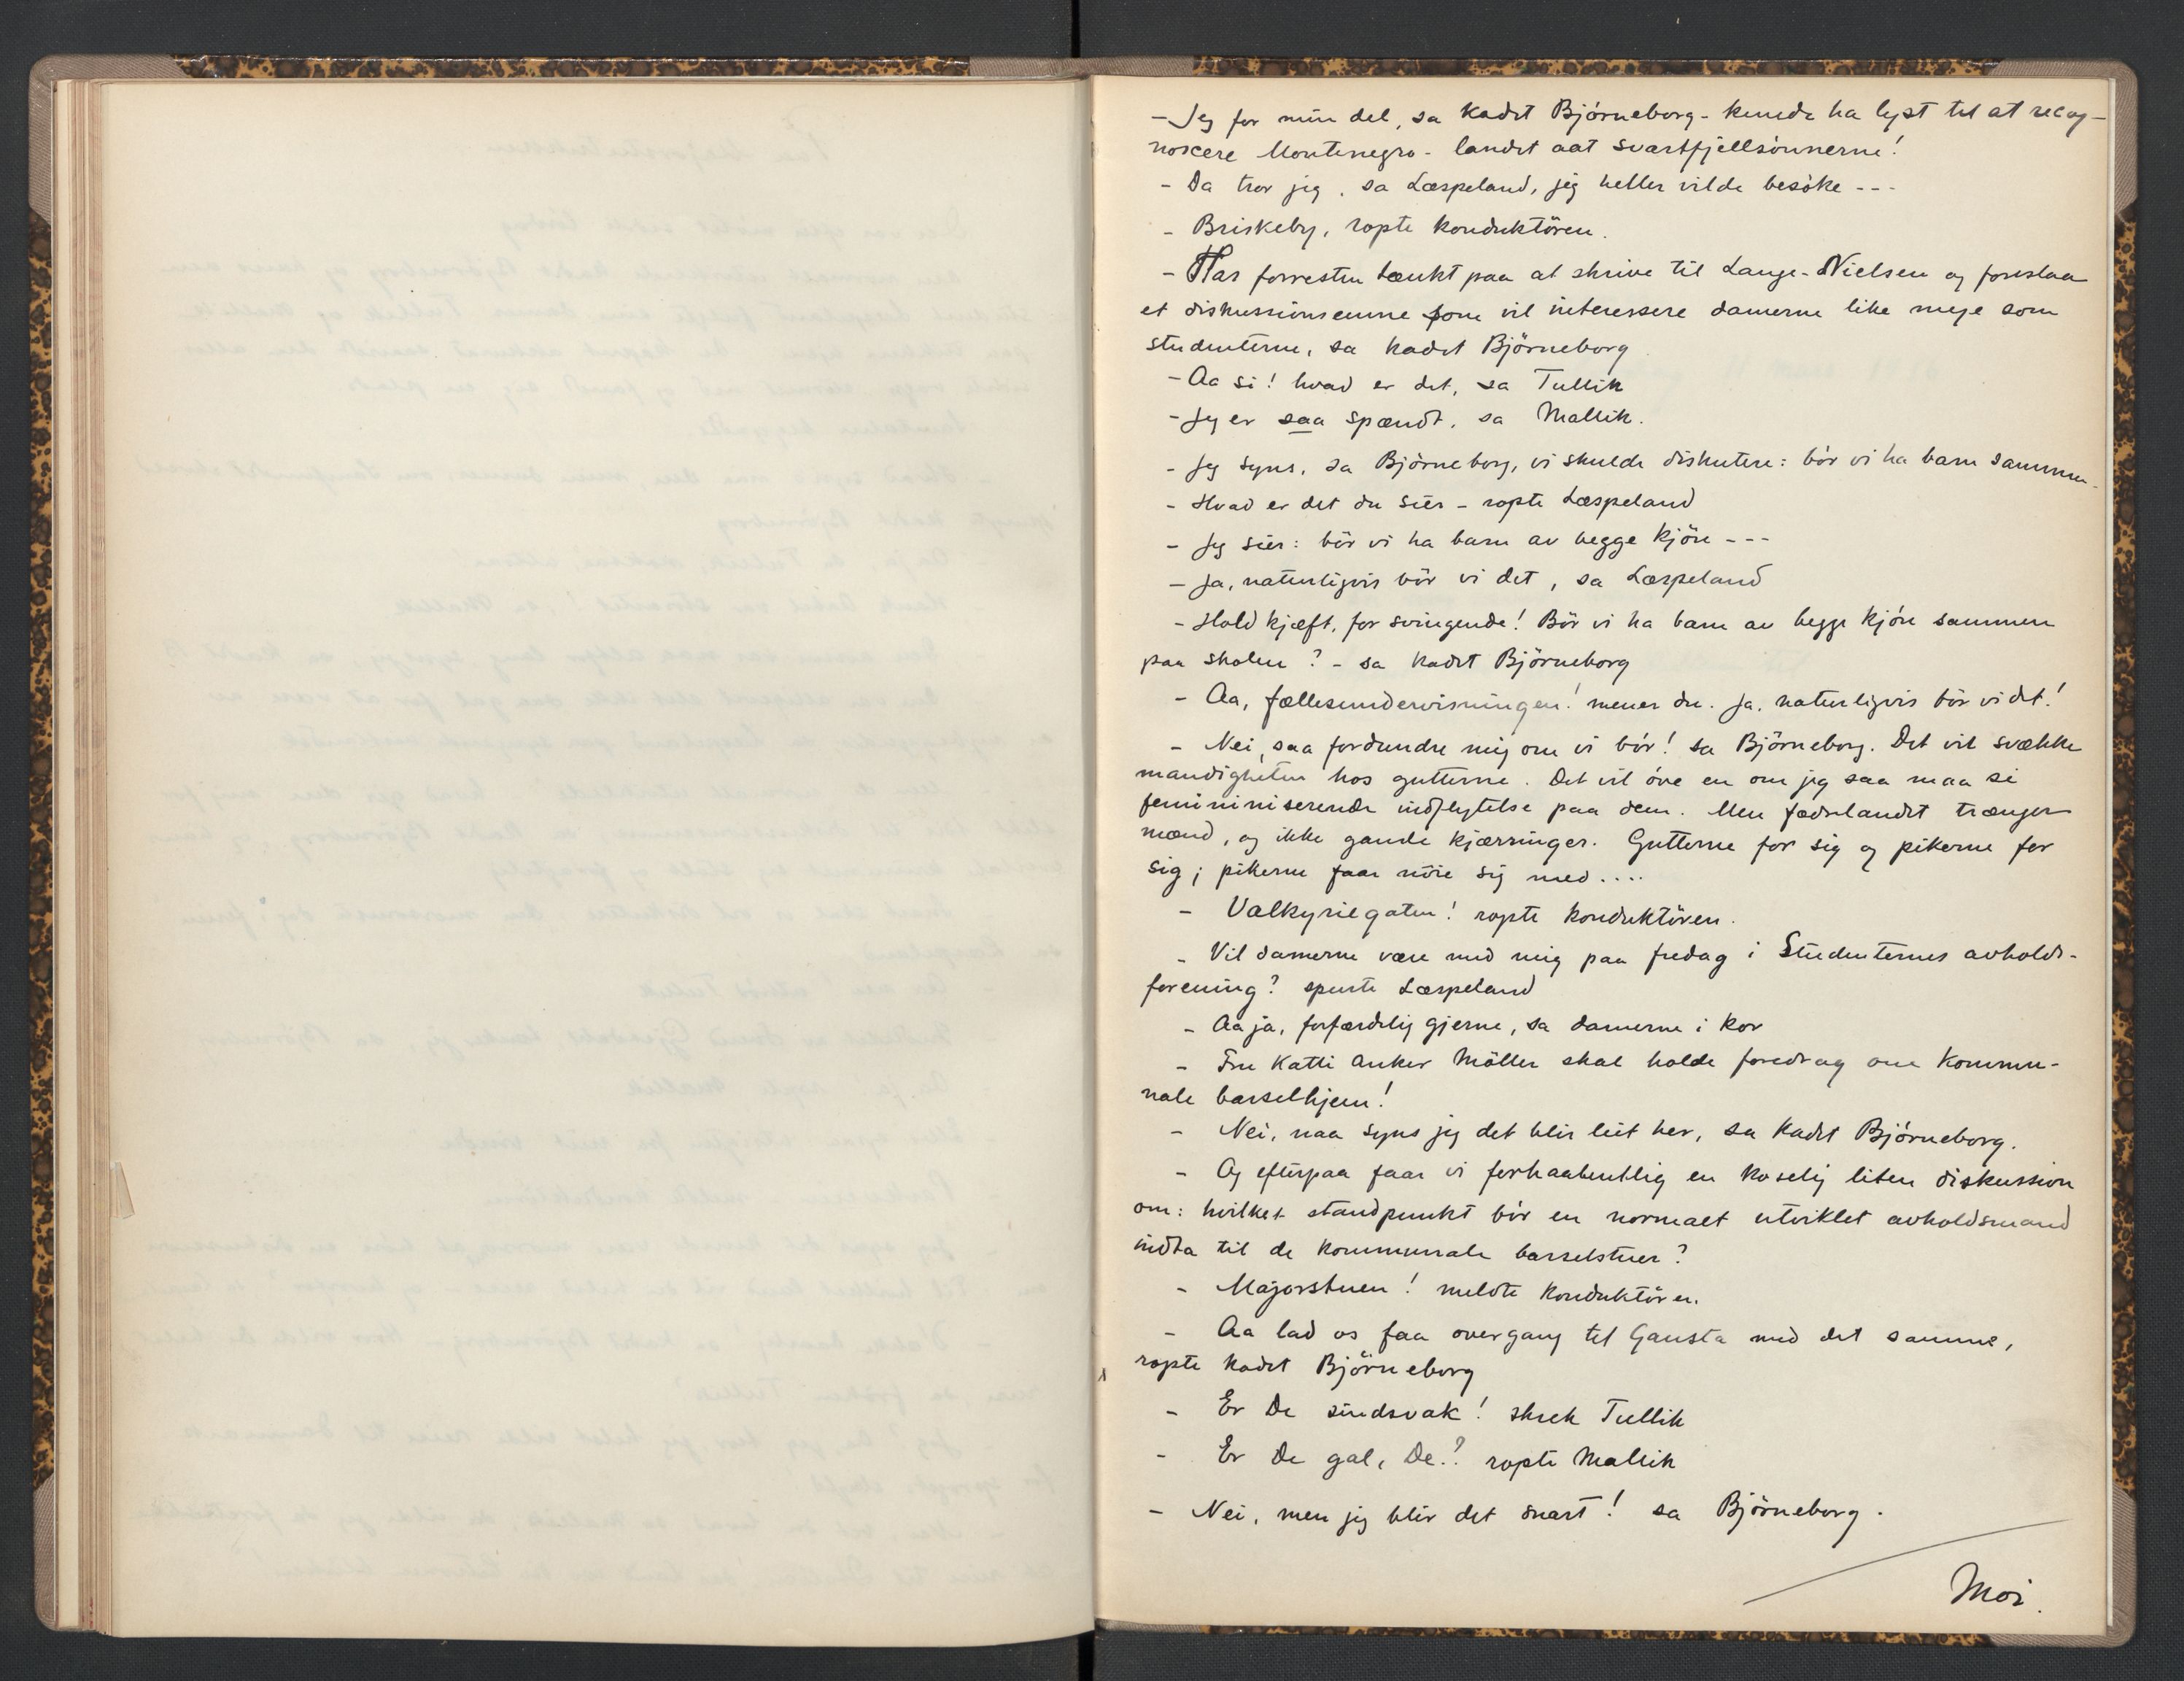 - Jeg for min del, sa kadet Björneborg - kunde ha lyst til at recog-
noscere Montenegro - landet aat svartfjellsönnerne!
- Da tror jeg, sa Læspeland, jeg heller vilde besöke - - -
- Briskeby, ropte konduktören.
- Har forresten tænkt paa at skrive til Lange-Nielsen og foreslaa
et diskussionsemne som vil interessere damerne like meje som
studenterne, sa kadet Björneborg
- Aa si! hvad er det, sa Tullik
- Jeg er saa spændt, sa Mallik.
- Jeg syns, sa Björneborg, vi skulde diskutere: bör vi ha barn sammen -
- Hvad er det du sier - ropte Læspeland
- Jeg sier: bör vi ha barn av begge kjön - - -
- Ja, naturligvis bör vi det, sa Læspeland
- Hold kjæft, for svingende! Bör vi ha barn av begge kjön sammen
paa skolen? - sa kadet Björneborg
- Aa, fællesundervisningen! mener du. Ja, naturligvis bör vi det!
- Nei, saa fordundre mig om vi bör! sa Björneborg. Det vil svække
mandigheten hos gutterne. Det vil öve en om jeg saa maa si
femininiserende indflytelse paa dem. Men fædrelandet trænger
mænd, og ikke gamle kjærringer. Gutterne for sig og pikerne for
sig; pikerne faar nöie sig med....
- Valkyriegaten! ropte konduktören.
- Vil damerne være med mig paa fredag i Studenternes avholds-
forening? spurte Læspeland
- Aa ja, forfærdelig gjerne, sa damerne i kor
- Fru Katti Anker Möller skal holde foredrag om kommu-
nale barselhjem!
- Nei, naa syns jeg det blir leit her, sa kadet Björneborg.
- Og efterpaa faar vi forhaabentlig en koselig liten diskussion
om: hvilket standpunkt bör en normalt utviklet avholdsmand
indta til de kommunale barselstuer?
- Majorstuen! meldte konduktören.
- Aa lad os faa overgang til Gausta med det samme,
ropte kadet Björneborg
- Er De sindsvak! skrek Tullik
- Er De gal, De?! ropte Mallik
- Nei, men jeg blir det snart! sa Björneborg.
Moi.